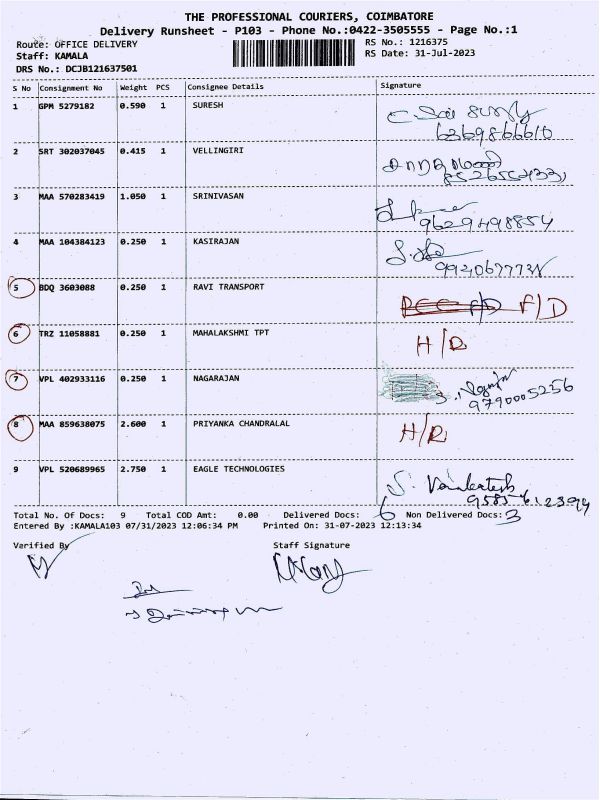 THE PROFESSIONAL COURIERS, COIMBATORE
Delivery Runsheet - P103 - Phone No.:0422-3505555 - Page No.:1
Route: OFFICE DELIVERY RS No.: 1216375
Staff: KAMALA RS Date: 31-Jul-2023
DRS No.: DCJB121637501
S No Consignment No Weight PCS Consignee Details Signature
1 GPM 5279182 0.590 1 SURESH
2 SRT 302037045 0.415 1 VELLINGIRI
3 MAA 570283419 1.050 1 SRINIVASAN
9629498854
4 MAA 104384123 0.250 1 KASIRAJAN
5 BDQ 3603088 0.250 1 RAVI TRANSPORT F/D
6 TRZ 11058881 0.250 1 MAHALAKSHMI TPT H/R
7 VPL 402933116 0.250 1 NAGARAJAN
9790005256
8 MAA 859638075 2.600 1 PRIYANKA CHANDRALAL H/R
9 VPL 520689965 2.750 1 EAGLE TECHNOLOGIES S. Venkatesh
9585612394
Total No. Of Docs: 9 Total COD Amt: 0.00 Delivered Docs: 6 Non Delivered Docs: 3
Entered By :KAMALA103 07/31/2023 12:06:34 PM Printed On: 31-07-2023 12:13:34
Verified By Staff Signature